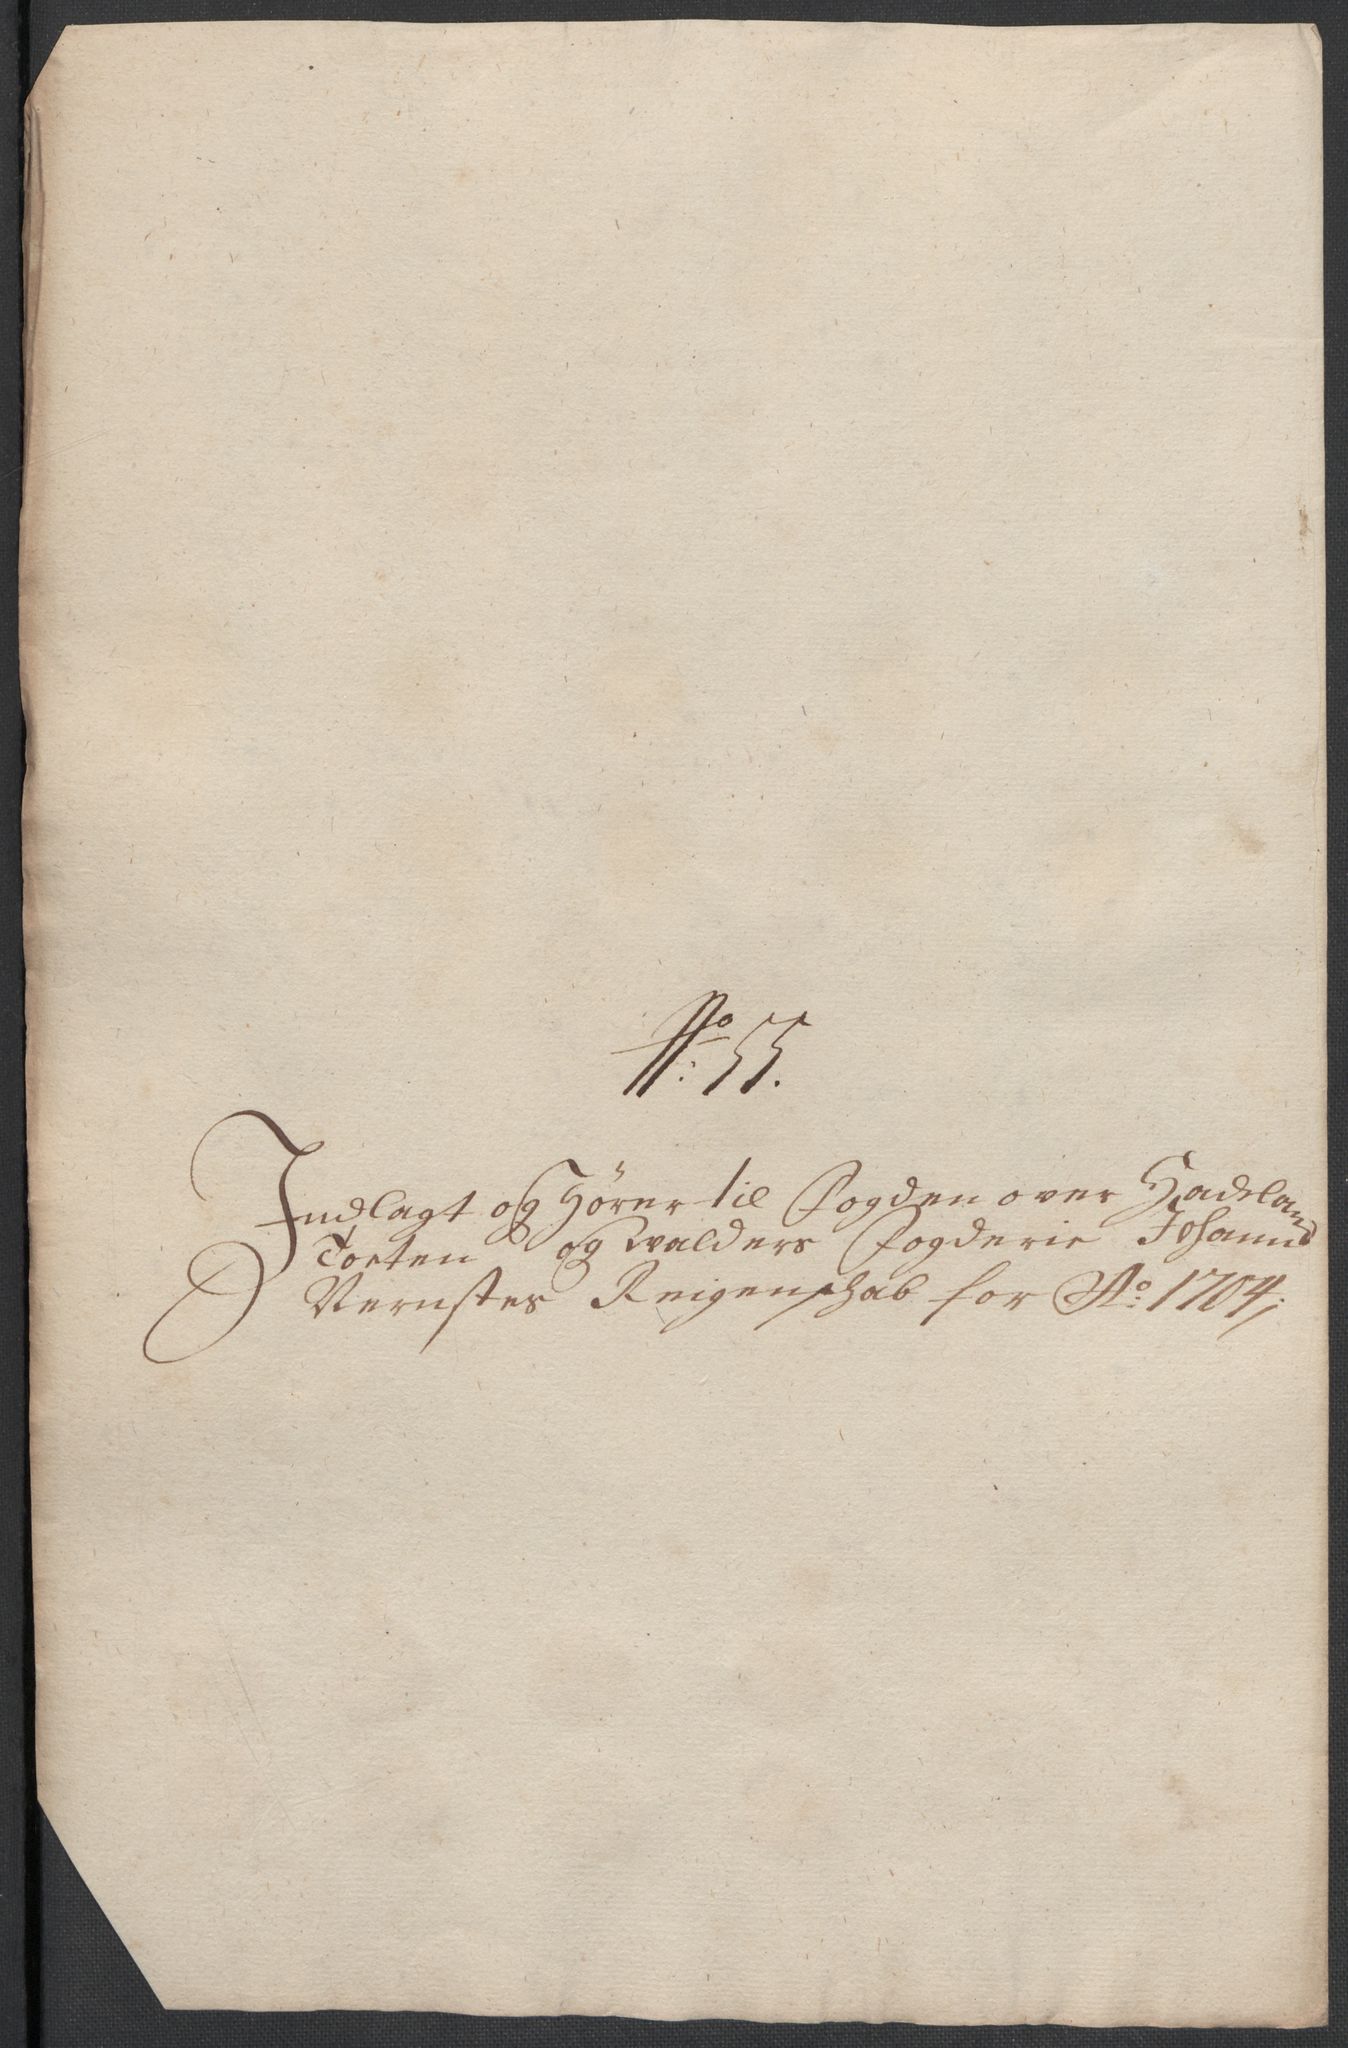 No: 55.
Indlagt og Hører til Fogden over Hadeland
Toeten og Walders Fogderie Johannes
Vernstes Reigenschab for Ao: 1704;